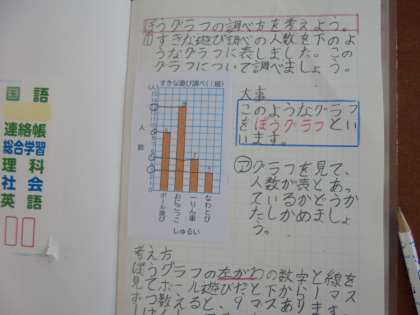 ぼうグラフの調べ方を考えよう。
1 すきな遊び調べの人数を下のよ
うなグラフに表しました。この
グラフについて調べましょう。
国語
連絡帳
総合学習
理科
社会
英語
すきな遊び調べ(1組)
(人)
人数
ボール遊び
おにごっこ
一りん車
なわとび
しゅるい
大事
このようなグラフ
をぼうグラフとい
います。
ア グラフを見て、
人数が表とあっ
ているかどうか
たしかめましょ
う。
考え方
ぼうグラフの左がわの数字と線を
見てボール遊びだと下から1マス
ずつ数えると、9マスあります。